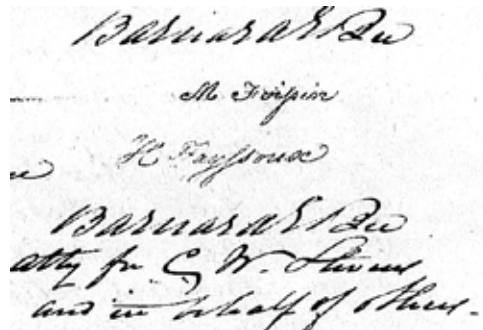 Barnard E Bee
M. Foissin
H Fayssoux
Barnard E Bee
atty for C, W. Stevens
and in behalf of others.